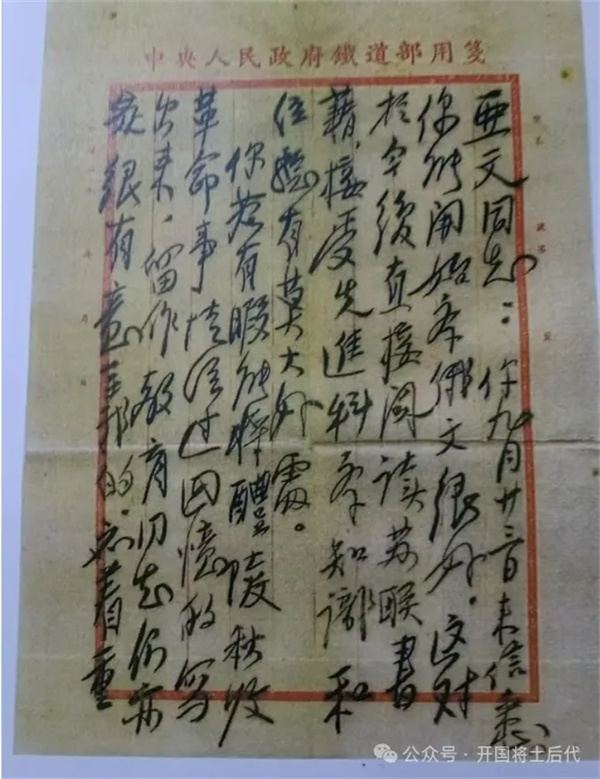 中央人民政府鐵道部用箋
亜文同志：你九月廿三日来信悉
你能開始学俄文很好。这对
於今後直接閱读苏联書
藉，接受先進科学知識和
经驗有莫大好處。
你若有暇能將醴陵秋收
革命事情经过回憶的写
出来，留作教育同志们亦
是很有意義的。应着重
公众号 · 开国将士后代